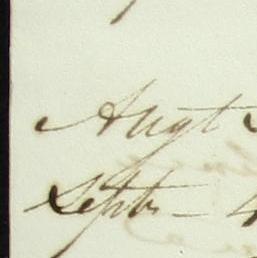 Augt
Septr - 4